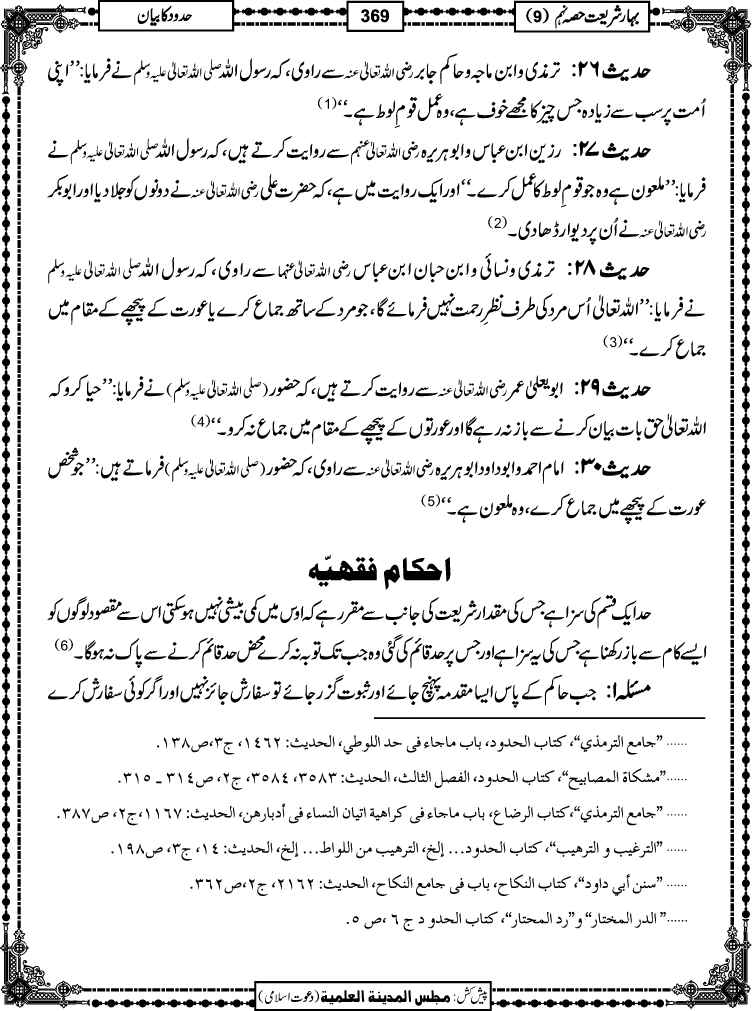 بہارِ شریعت حصہ نہم (9)
369
حدود کا بیان
حدیث ۲۶: ترمذی و ابن ماجہ و حاکم جابر رضی اللہ تعالیٰ عنہ سے راوی، کہ رسول اللہ صلی اللہ تعالیٰ علیہ وسلم نے فرمایا: ’’اپنی
اُمت پر سب سے زیادہ جس چیز کا مجھے خوف ہے، وہ عمل قومِ لوط ہے۔‘‘ (1)
حدیث ۲۷: رزین ابن عباس و ابوہریرہ رضی اللہ تعالیٰ عنہم سے روایت کرتے ہیں، کہ رسول اللہ صلی اللہ تعالیٰ علیہ وسلم نے
فرمایا: ’’ملعون ہے وہ جو قومِ لوط کا عمل کرے۔‘‘ اور ایک روایت میں ہے، کہ حضرت علی رضی اللہ تعالیٰ عنہ نے دونوں کو جلا دیا اور ابوبکر
رضی اللہ تعالیٰ عنہ نے اُن پر دیوار ڈھا دی۔ (2)
حدیث ۲۸: ترمذی و نسائی و ابن حبان ابن عباس رضی اللہ تعالیٰ عنہما سے راوی، کہ رسول اللہ صلی اللہ تعالیٰ علیہ وسلم
نے فرمایا: ’’اللہ تعالیٰ اُس مرد کی طرف نظرِ رحمت نہیں فرمائے گا، جو مرد کے ساتھ جماع کرے یا عورت کے پیچھے کے مقام میں
جماع کرے۔‘‘ (3)
حدیث ۲۹: ابو یعلیٰ عمر رضی اللہ تعالیٰ عنہ سے روایت کرتے ہیں، کہ حضور (صلی اللہ تعالیٰ علیہ وسلم) نے فرمایا: ’’حیا کرو کہ
اللہ تعالیٰ حق بات بیان کرنے سے باز نہ رہے گا اور عورتوں کے پیچھے کے مقام میں جماع نہ کرو۔‘‘ (4)
حدیث ۳۰: امام احمد و ابوداود ابوہریرہ رضی اللہ تعالیٰ عنہ سے راوی، کہ حضور (صلی اللہ تعالیٰ علیہ وسلم) فرماتے ہیں: ’’جو شخص
عورت کے پیچھے میں جماع کرے، وہ ملعون ہے۔‘‘ (5)
احکام فقهیّه
حد ایک قسم کی سزا ہے جس کی مقدار شریعت کی جانب سے مقرر ہے کہ اوس میں کمی بیشی نہیں ہوسکتی اس سے مقصود لوگوں کو
ایسے کام سے باز رکھنا ہے جس کی یہ سزا ہے اور جس پر حد قائم کی گئی وہ جب تک توبہ نہ کرے محض حد قائم کرنے سے پاک نہ ہوگا۔ (6)
مسئلہ ۱: جب حاکم کے پاس ایسا مقدمہ پہنچ جائے اور ثبوت گزر جائے تو سفارش جائز نہیں اور اگر کوئی سفارش کرے
...... ”جامع الترمذي“، كتاب الحدود، باب ماجاء فى حد اللوطي، الحديث: ١٤٦٢، ج٣،ص١٣٨.
......”مشكاة المصابيح“، كتاب الحدود، الفصل الثالث، الحديث: ٣٥٨٣، ٣٥٨٤، ج٢، ص٣١٤ ـ ٣١٥.
...... ”جامع الترمذي“،كتاب الرضاع، باب ماجاء فى كراهية اتيان النساء فى أدبارهن، الحديث: ١١٦٧،ج٢، ص٣٨٧.
...... ”الترغيب و الترهيب“، كتاب الحدود... إلخ، الترهيب من اللواط... إلخ، الحديث: ١٤، ج٣، ص١٩٨.
...... ”سنن أبي داود“، كتاب النكاح، باب فى جامع النكاح، الحديث: ٢١٦٢، ج٢،ص٣٦٢.
......” الدر المختار“ و”رد المحتار“، كتاب الحدو د ج ٦ ،ص ٥.
پیش کش: مجلس المدينة العلمية (دعوتِ اسلامی)